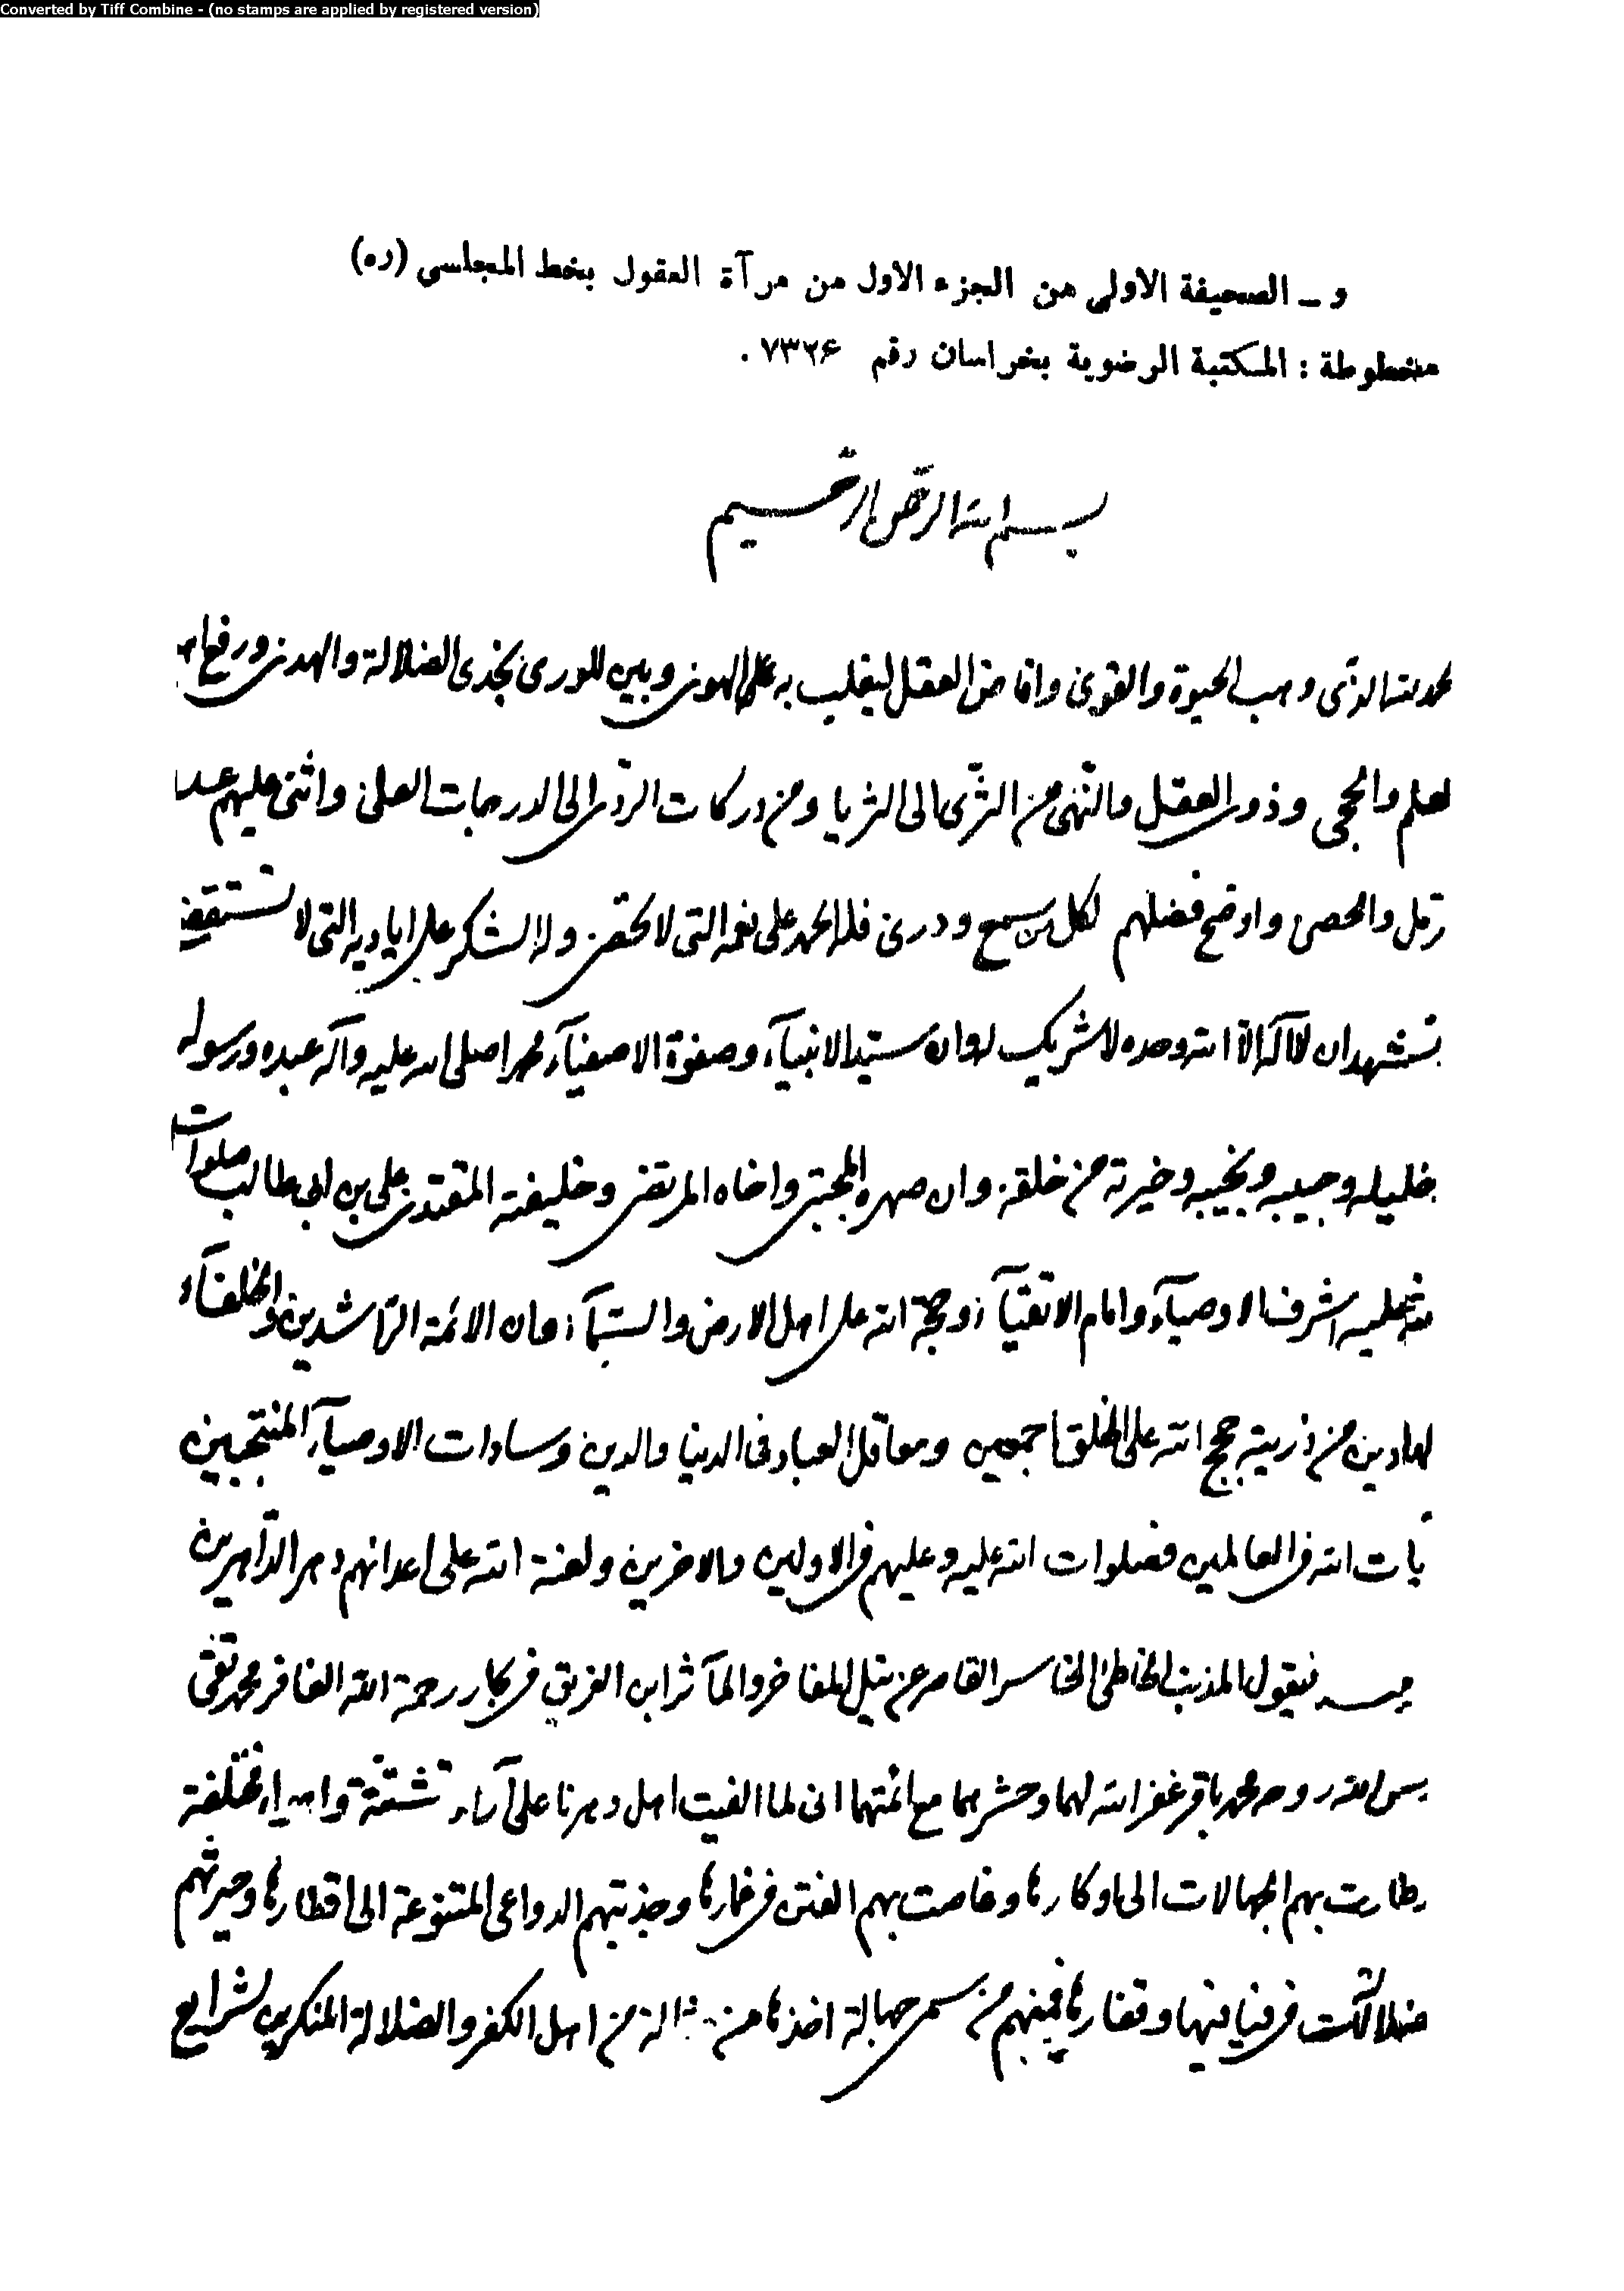 Converted by Tiff Combine - (no stamps are applied by registered version)
و ــ الصحيفة الاولى من الجزء الاول من مرآة العقول بخط المجلسى (ره)
مخطوطة : المكتبة الرضوية بخراسان رقم ۷۳۲۶ .
بسم الله الرحمن الرحيم
لحمد لله الذى وهب الحيوة والقوى وافاض العقل ليغلب به على الهوى وبين للورى نجدى الضلالة والهدى ورفع
لعلم والحجى وذوى العقل والنهى من الثرى الى الثريا ومن دركات الردى الى الدرجات العلى واثنى عليهم عدد
رمل والحصى واوضح فضلهم لكل من سمع ودرى فله الحمد على نعمه التى لا تحصى وله الشكر على اياديه التى لا تستقصى
نشهد ان لا آله الا الله وحده لا شريك له وان سيد الانبيآء وصفوة الاصفيآء محمدا صلى الله عليه وآله عبده ورسوله
خليله وحبيبه ونجيبه وخيرته من خلقه وان صهره المجتبى واخاه المرتضى وخليفته المقتدى على بن ابى طالب صلوات
لله عليه اشرف الاوصيآء وامام الاتقيآء وحجة الله على اهل الارض والسمآء وان الائمة الراشدين والخلفآء
لهادين من ذريته حجج الله على الخلق اجمعين ومعاقل العباد فى الدنيا والدين وسادات الاوصيآء المنتجبين
يات الله فى العالمين فصلوات الله عليه وعليهم فى الاولين والاخرين ولعنة الله على اعدائهم دهر الداهرين
فيقول المذنب الخاطئ الخاسر القاصر عن نيل المفاخر والمآثر ابن الغريق فى بحار رحمة الله الغافر محمد تقى
قدس الله روحه محمد باقر غفر الله لهما وحشرهما مع ائمتهما انى لما الفيت اهل دهرنا على آراء متشتتة واهواء مختلفة
طارت بهم الجهالات الى اوكارها وغاصت بهم الفتن فى غمارها وجذبتهم الدواعى المتنوعة الى اقطارها وحيرتهم
ضلالات فى فيافيها وقفارها فمنهم من سمى جهالة اخذها من حثالة من اهل الكفر والضلالة المنكرين لشرايع